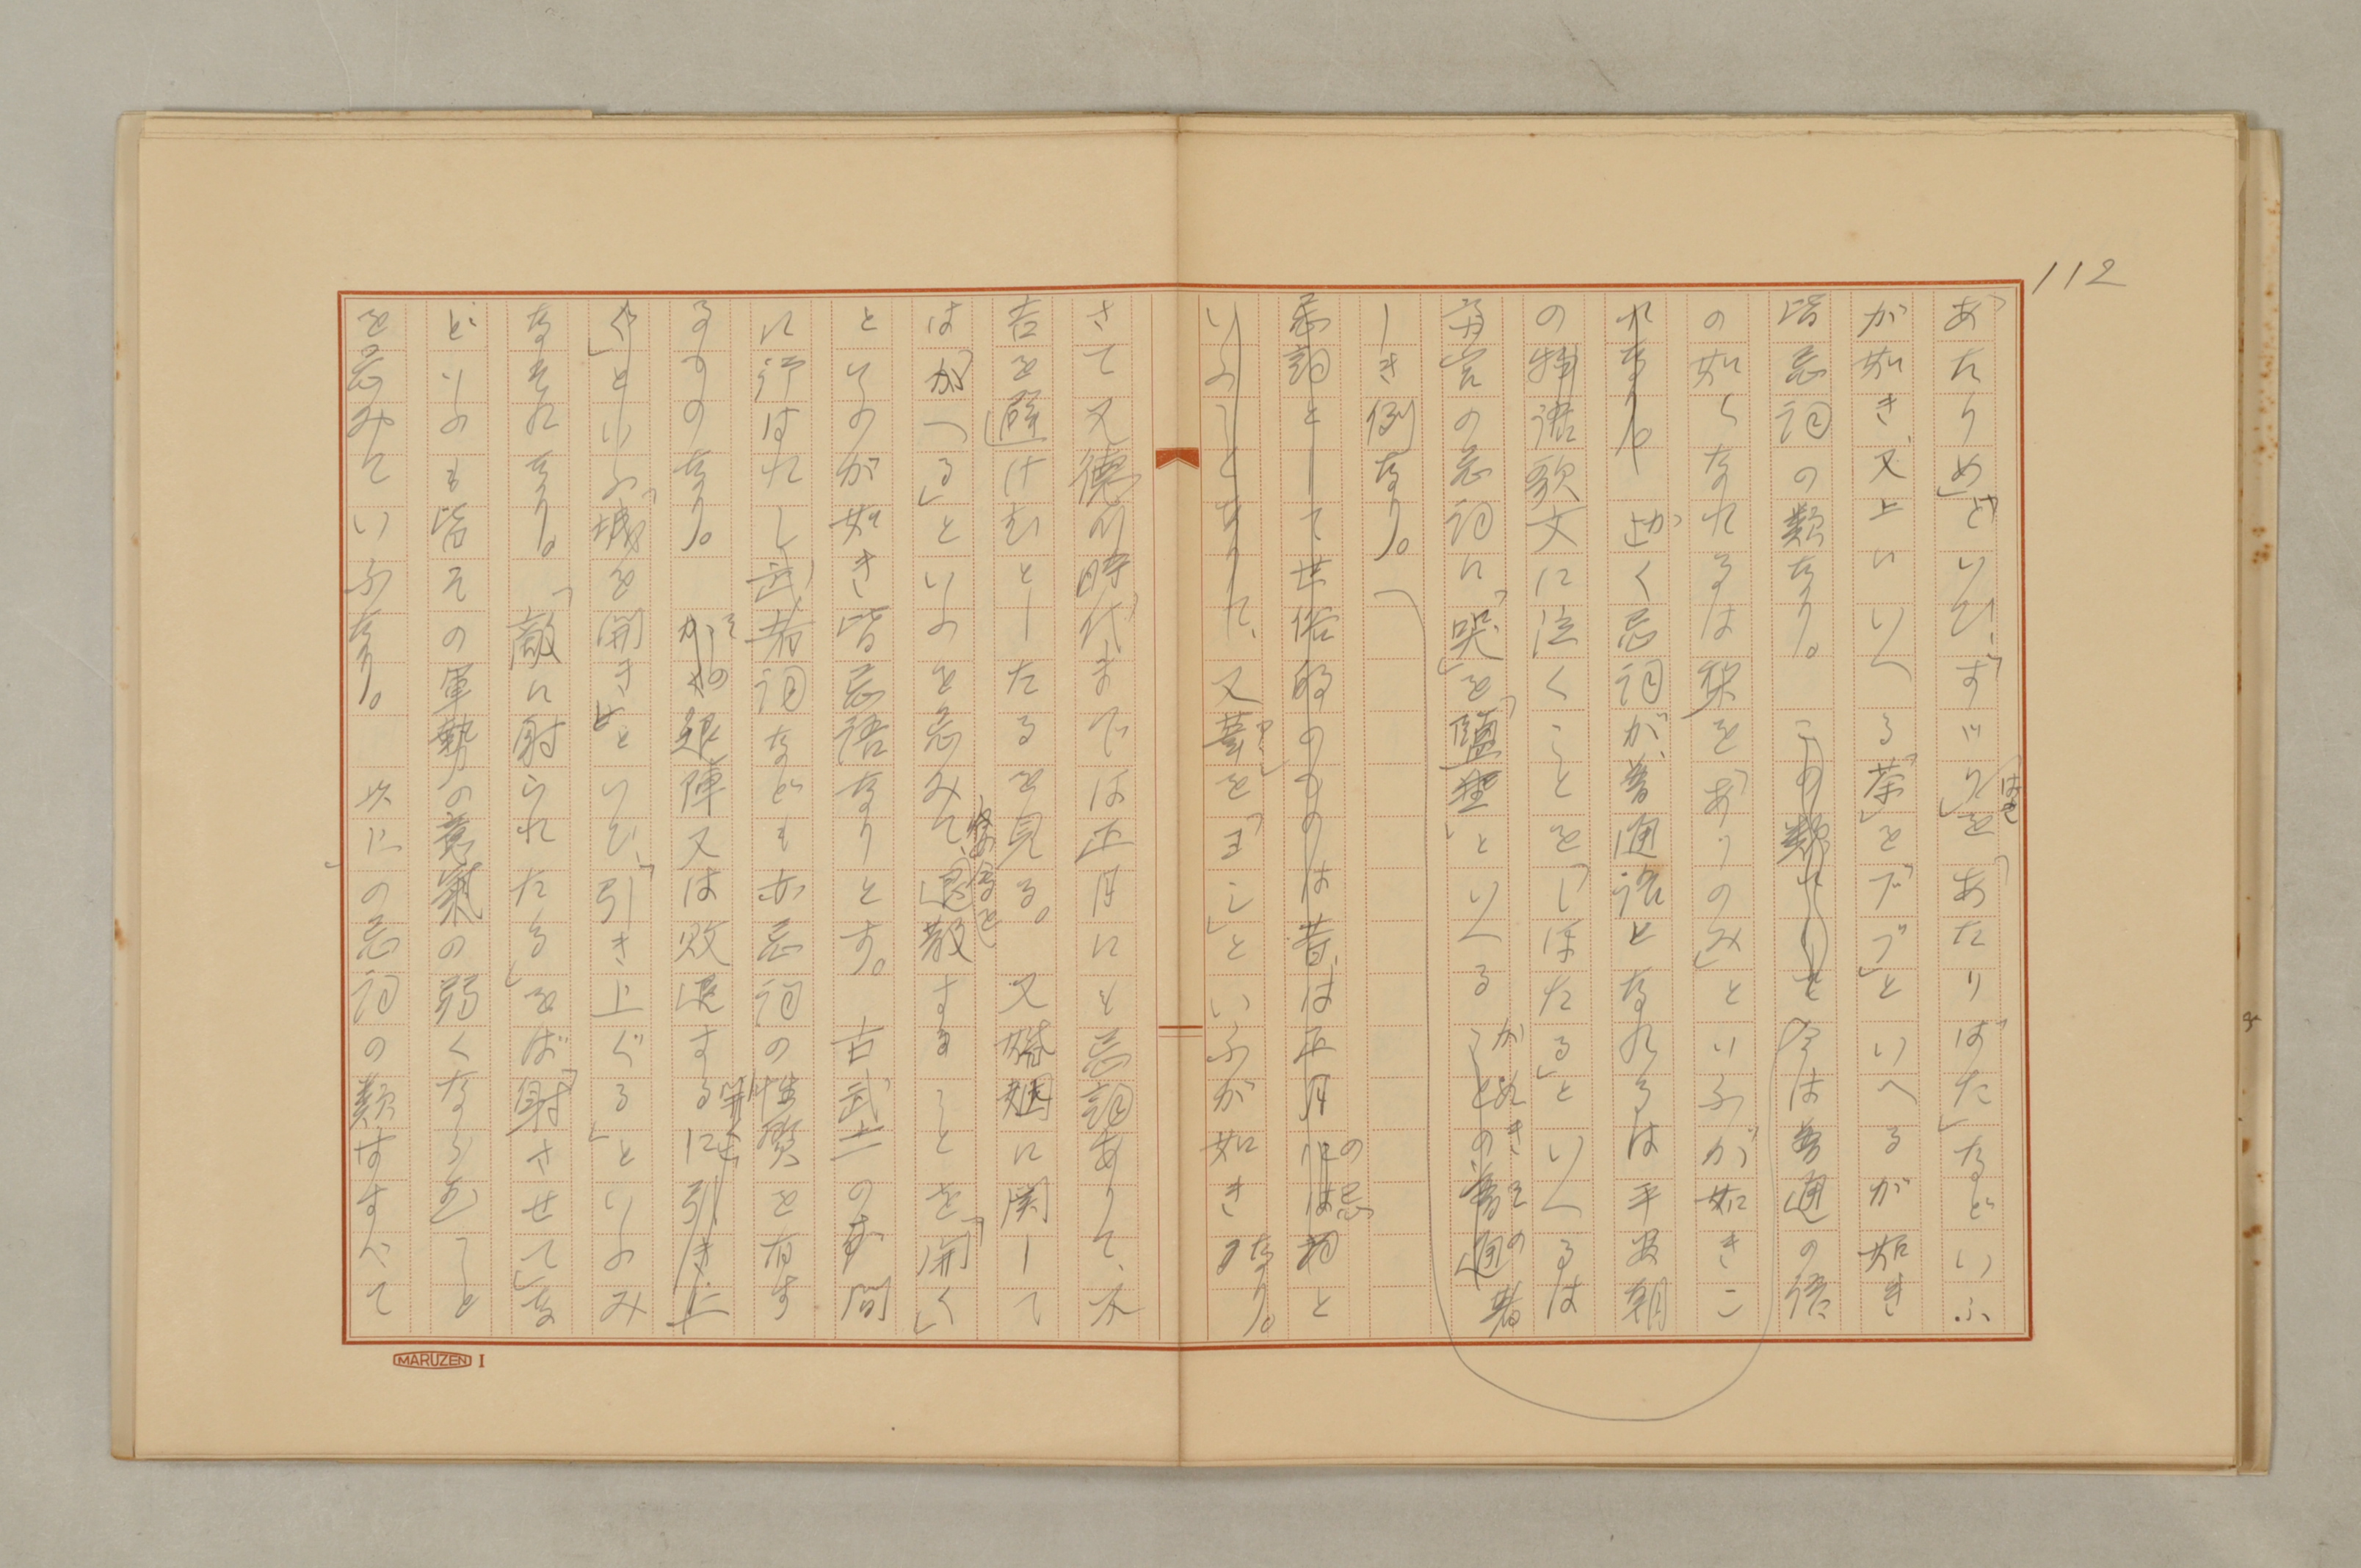 112
あたりめ」といひ、「すゞり」を「あたりばた」などいふ
が如き、又上にいへる「茶」を「ブブ」といへるが如き
皆忌詞の類なり。この類にして今は普通の語
の如くなれるは梨を「ありのみ」といふが如きこ
れなり。かく忌詞が、普通語となれるは平安朝
の物語歌文に泣くことを「しほたる」といへるは
斎宮の忌詞に「哭」を「鹽垂」といへることの普通
かぬきその著
しき例なり。
忌詞として世俗的のものは昔は正月には詞と
の忌
いふことありて、又葦を「ヨシ」といふが如きなり。
さて又徳川時代までは正月にも忌詞ありて、不
吉を避けむとしたるを見る。又婚姻に関して
はかへる」といふを忌みて、退散することを「開く」
といふが如き皆忌語なりとす。古武士の間
に行はれし武者詞なども亦忌詞の性質を有す
るものなり。その退陣又は敗退するに引きに
「といふ「城を開き」といひ、「引き上ぐる」といふみ
なそれなり。「敵に射られたる」をば「射させて」な
どいふも皆その軍勢の意氣の弱くならむこと
を忌みていふなり。
以上の忌詞の類はすべて
MARUZEN I